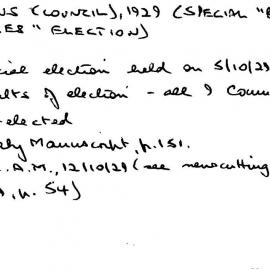 NS (COUNCIL), 1929 (SPECIAL "B
ES" ELECTION)
cial election held on 5/10/29
lts of election - all 9 Coun
-elected
ely Manuscript, p.151.
.A.M., 12/10/29 (see newscutting
, p. 54)